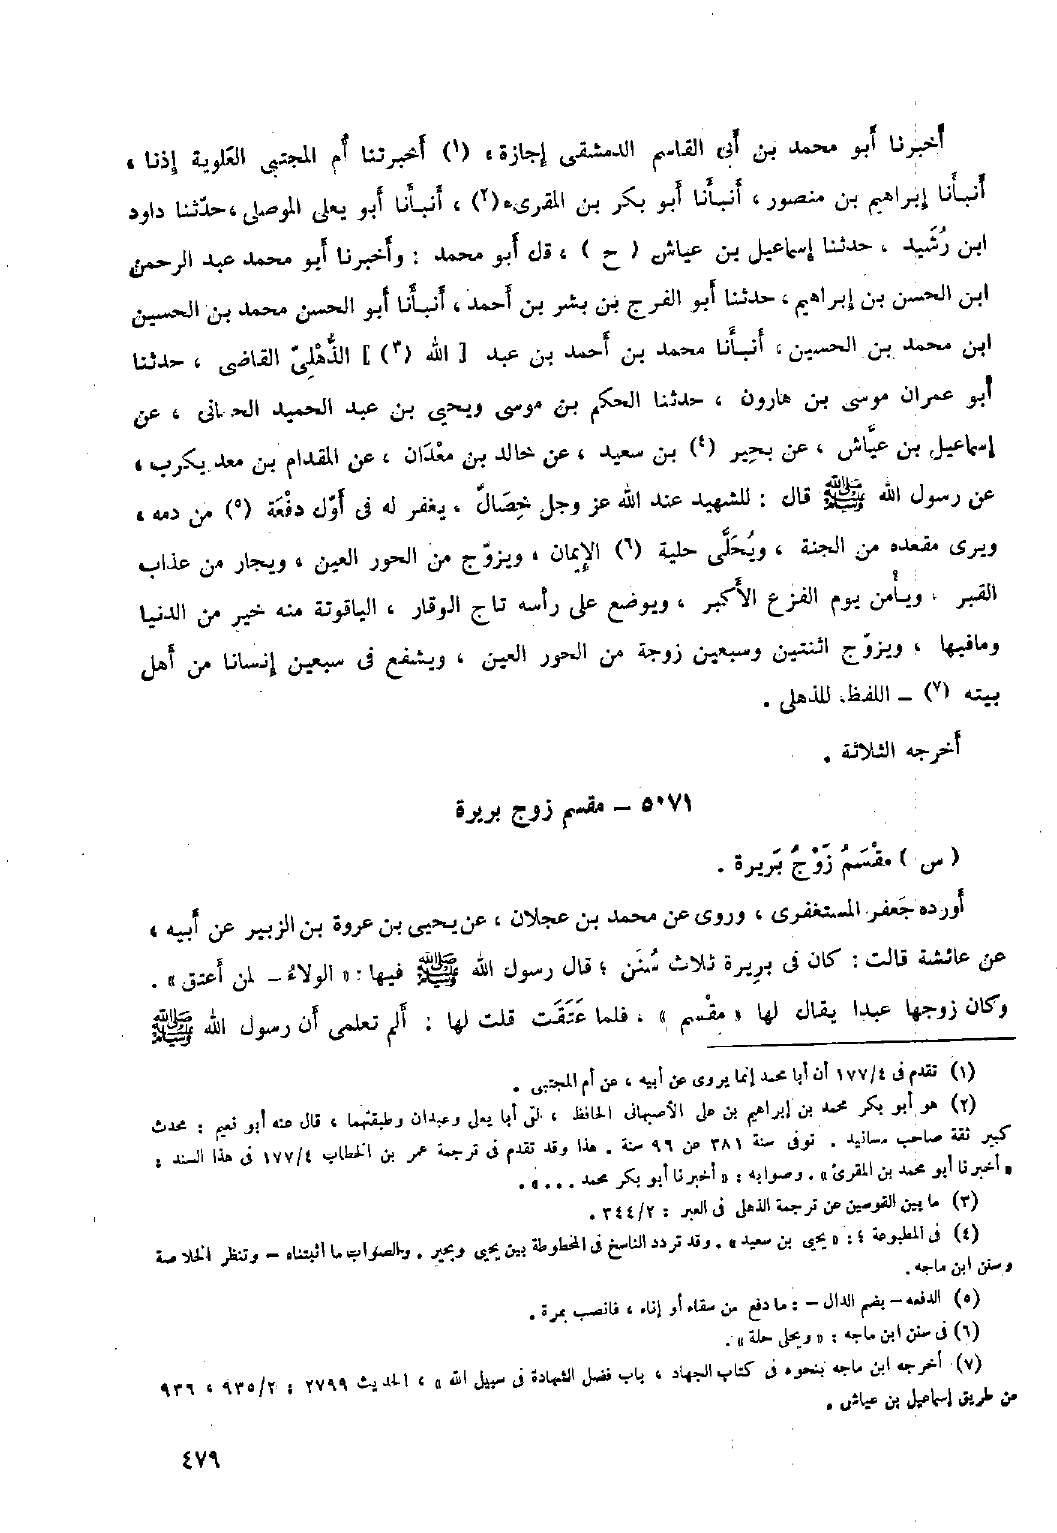 أخبرنا أبو محمد بن أبى القاسم الدمشقى إجازة، (١) أخبرتنا أم المجتبى العَلوية إذنا ،
أنبأنا إبراهيم بن منصور ، أنبأنا أبو بكر بن المقرىء(٢) ، أنبأنا أبو يعلى الموصلى ، حدّثنا داود
ابن رُشَيد ، حدثنا إسماعيل بن عياش ( ح ) ، قال أبو محمد : وأخبرنا أبو محمد عبد الرحمن
ابن الحسن بن إبراهيم ، حدثنا أبو الفرج بن بشر بن أحمد ، أنبأنا أبو الحسن محمد بن الحسين
ابن محمد بن الحسين ، أنبأنا محمد بن أحمد بن عبد [ الله (٣) ] الذُّهْلِىّ القاضى ، حدثنا
أبو عمران موسى بن هارون ، حدثنا الحكم بن موسى ويحيى بن عبد الحميد الحمانى ، عن
إسماعيل بن عيَّاش ، عن بحِير (٤) بن سعيد ، عن خالد بن معْدَان ، عن المقدام بن معد يكرب ،
عن رسول الله ﷺ قال : للشهيد عند الله عز وجل خِصَالٌ ، يغفر له فى أوّل دفْعَة (٥) من دمه ،
ويرى مقعده من الجنة ، ويُحَلَّى حلية (٦) الإِيمان ، ويزوّج من الحور العين ، ويجار من عذاب
القبر ، ويأْمن يوم الفزع الأَكبر ، ويوضع على رأسه تاج الوقار ، الياقوتة منه خير من الدنيا
ومافيها ، ويزوّج اثنتين وسبعين زوجة من الحور العين ، ويشفع فى سبعين إنسانا من أهل
بيته (٧) – اللفظ للذهلى .
أخرجه الثلاثة .
٥٠٧١ – مقسم زوج بريرة
( س ) مقْسَمُ زَوْجُ بَريرة .
أورده جَعفر المستغفرى ، وروى عن محمد بن عجلان ، عن يحيى بن عروة بن الزبير عن أبيه ،
عن عائشة قالت : كان فى برِيرة ثلاث سُنَن ؛ قال رسول الله ﷺ فيها : « الولاءُ – لمن أعتق » .
وكان زوجها عبدا يقال لها « مِقْسم » ، فلما عَتَقَت قلت لها : ألم تعلمى أن رسول الله ﷺ
(١) تقدم فى ١٧٧/٤ أن أبا محمد إنما يروى عن أبيه ، عن أم المجتبى .
(٢) هو أبو بكر محمد بن إبراهيم بن على الأصبهانى الحافظ ، لقى أبا يعلى وعبدان وطبقتهما ، قال عنه أبو نعيم : محدث
كبير ثقة صاحب مسانيد . توفى سنة ٣٨١ عن ٩٦ سنة . هذا وقد تقدم فى ترجمة عمر بن الخطاب ١٧٧/٤ فى هذا السند :
« أخبرنا أبو محمد بن المقرئ » . وصوابه : « أخبرنا أبو بكر محمد ... » .
(٣) ما بين القوسين عن ترجمة الذهلى فى العبر : ٣٤٤/٢ .
(٤) فى المطبوعة : « يحيى بن سعيد » . وقد تردد الناسخ فى المخطوطة بين يحيى وبحير . والصواب ما أثبتناه – وتنظر الخلاصة
وسنن ابن ماجه .
(٥) الدفعه – بضم الدال – : ما دفع من سقاء أو إناء ، فانصب بمرة .
(٦) فى سنن ابن ماجه : « ويحلى حلة » .
(٧) أخرجه ابن ماجه بنحوه فى كتاب الجهاد ، باب فضل الشهادة فى سبيل الله » ، الحديث ٢٧٩٩ : ٩٣٥/٢ ، ٩٣٦
من طريق إسماعيل بن عياش .
٤٧٩